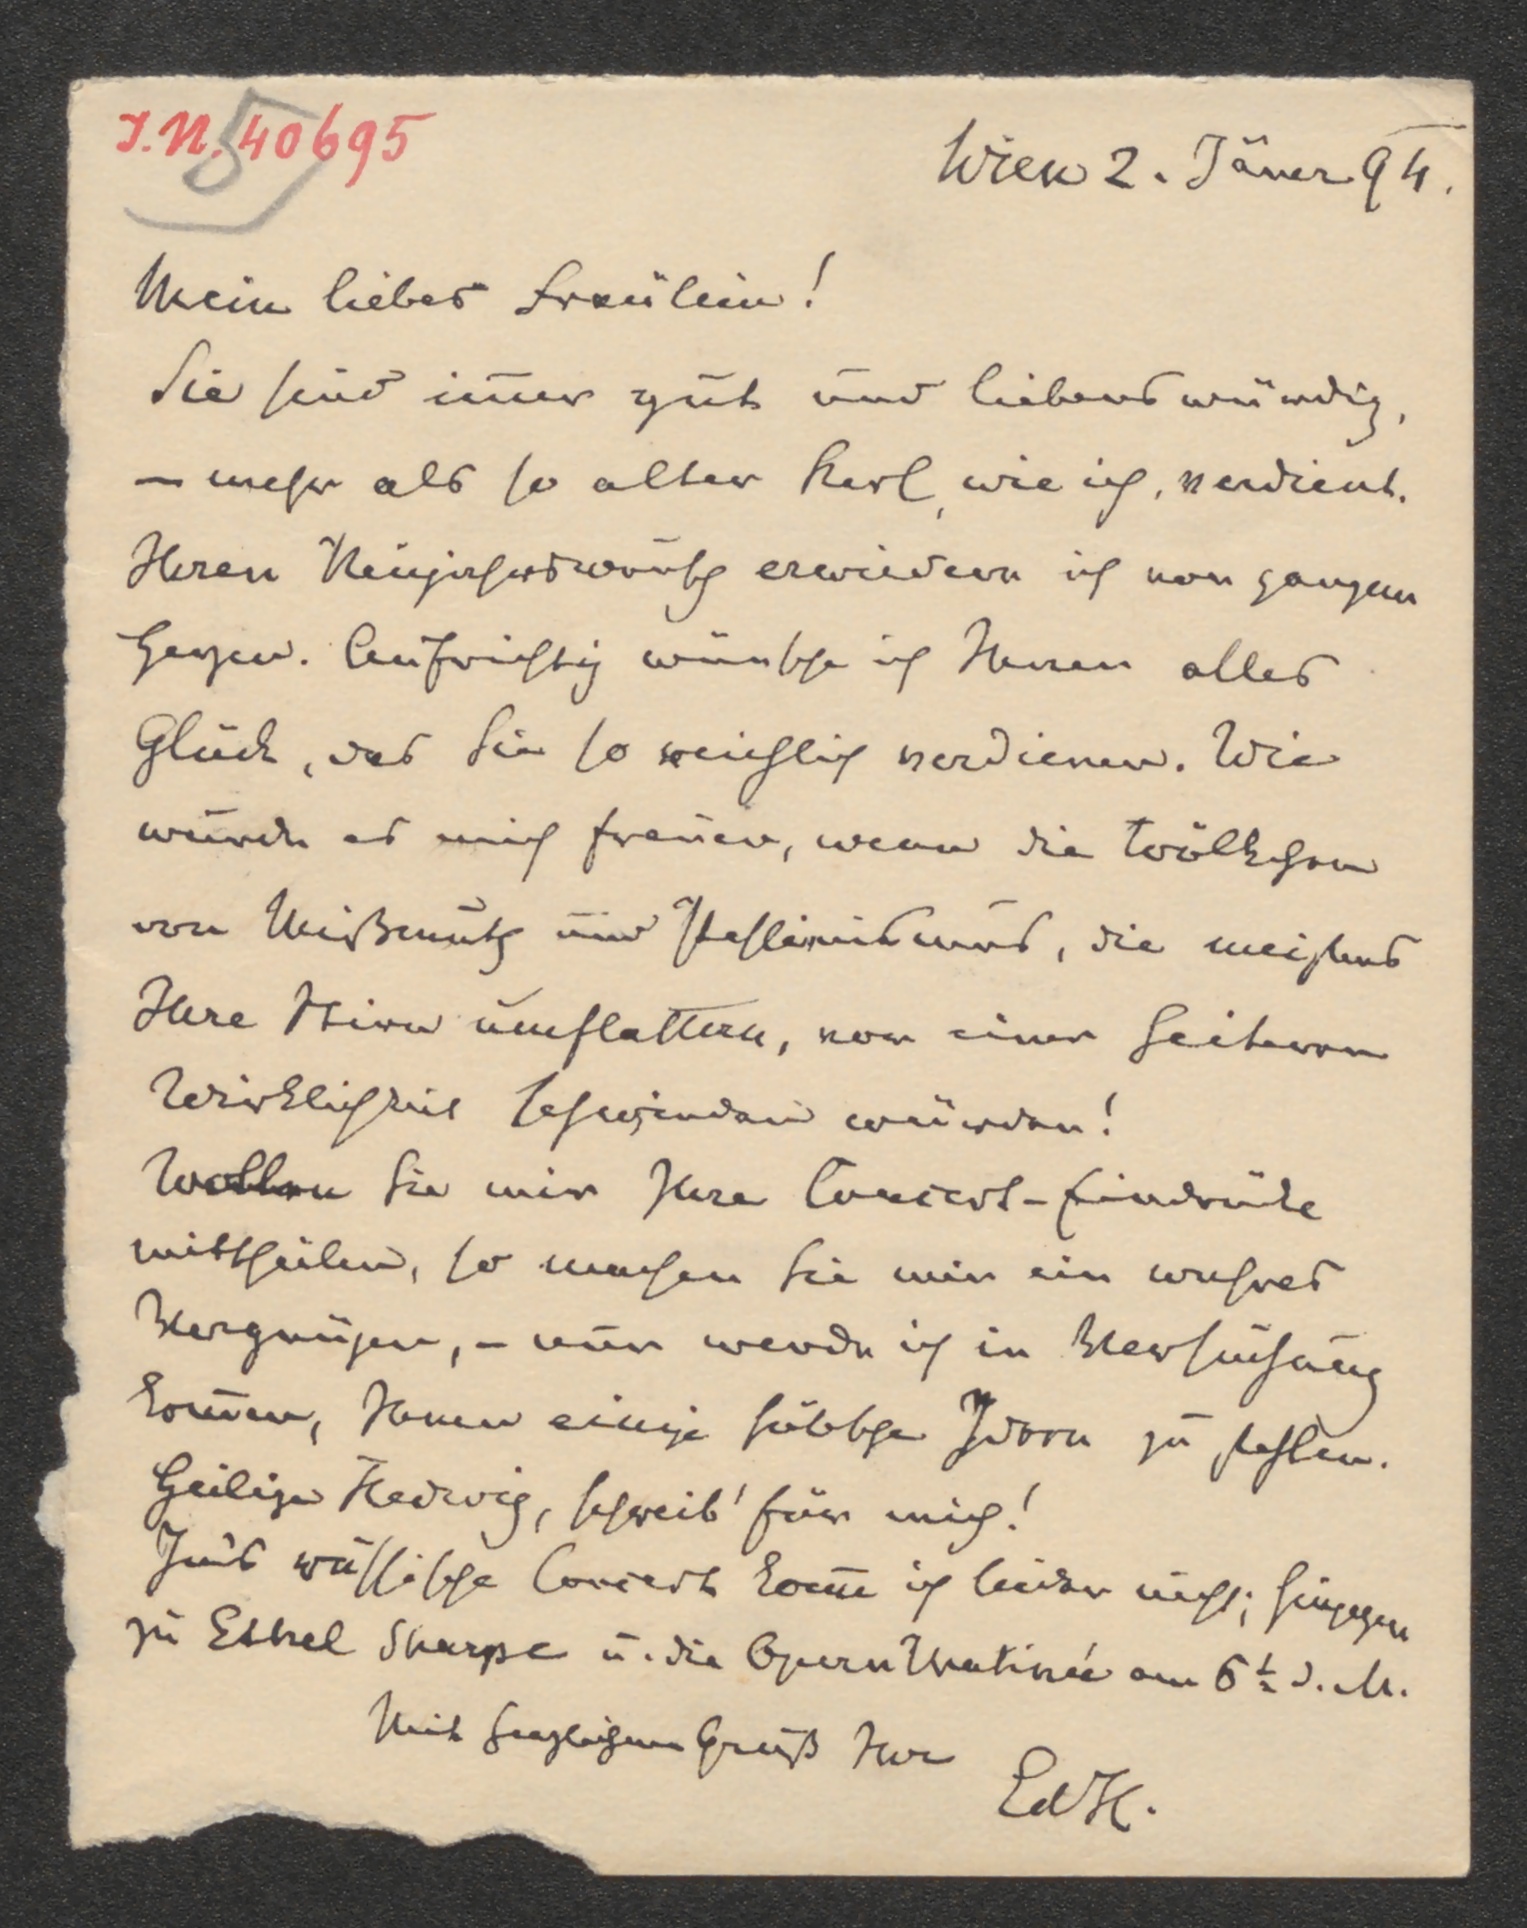 I.N. 40695
5
Wien 2. Jäner 94.
Mein liebes Fräulein!
Sie sind im̅er gut und liebenswürdig,
– mehr als so alter Kerl, wie ich, verdient.
Ihren Neujahrswunsch erwiedern ich von ganzem
Herzen. Aufrichtig wünsche ich Ihnen alles
Glück, das Sie so reichlich verdienen. Wie
würde es mich freuen, wenn die Wölkchen
von Mißmuth und Pessimismus, die meistens
Ihre Stirn umflattern, vor einer heiteren
Wirklichkeit schwinden würden!
Wollen Sie mir Ihre Concert-Eindrücke
mittheilen, so machen Sie mir ein wahres
Vergnügen, – nur werde ich in Versuchung
kom̅en, Ihnen einige hübsche Ideen zu stehlen.
Heilige Hedwig, schreib' für mich!
In's russische Concert kom̅e ich leider nicht; hingegen
zu Ethel Sharpe u. die Opern Matinée am 6t d. M.
Mit herzlichem Gruß Ihr
Ed H.